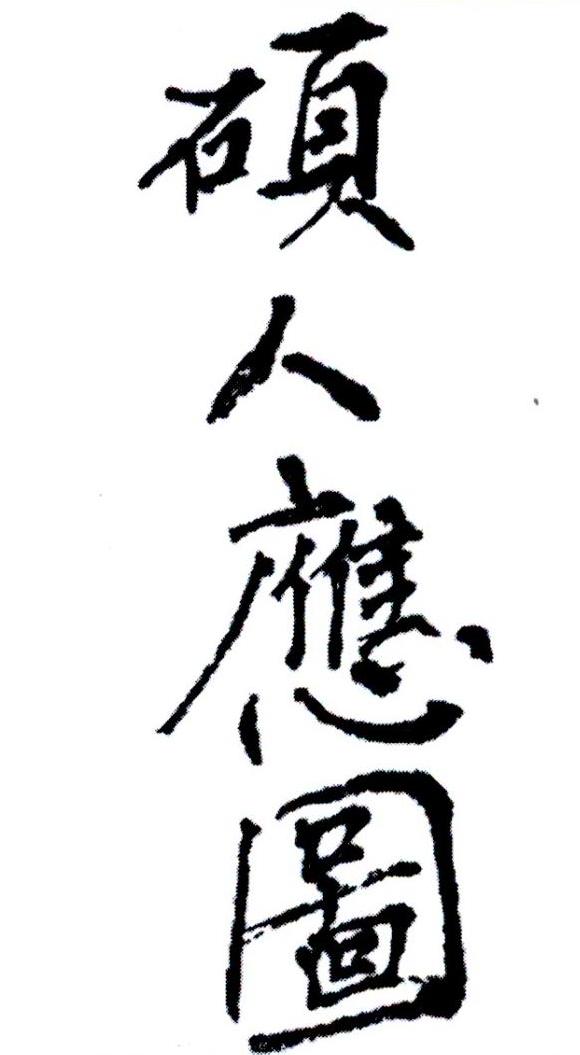 碩人應圖